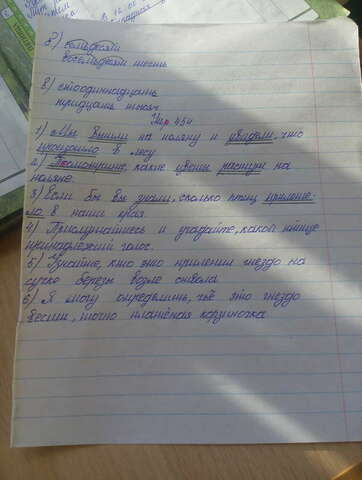 б) семьдесяти
восемьдесяти шести
в) стоодиннадцать
тридцать тысяч
Упр 454
1) Мы вышли на поляну и увидели, что
произошло в лесу
2) Посмотрите, какие цветы растут на
поляне.
3) Если бы вы знали, сколько птиц прилете-
ло в наши края.
4) Прислушайтесь и угадайте, какой птице
принадлежит голос.
5) Узнайте, кто это прилепил гнездо на
сучке берёзы возле ствола
6) Я могу определить, чьё это гнездо
висит, точно плетёная корзиночка